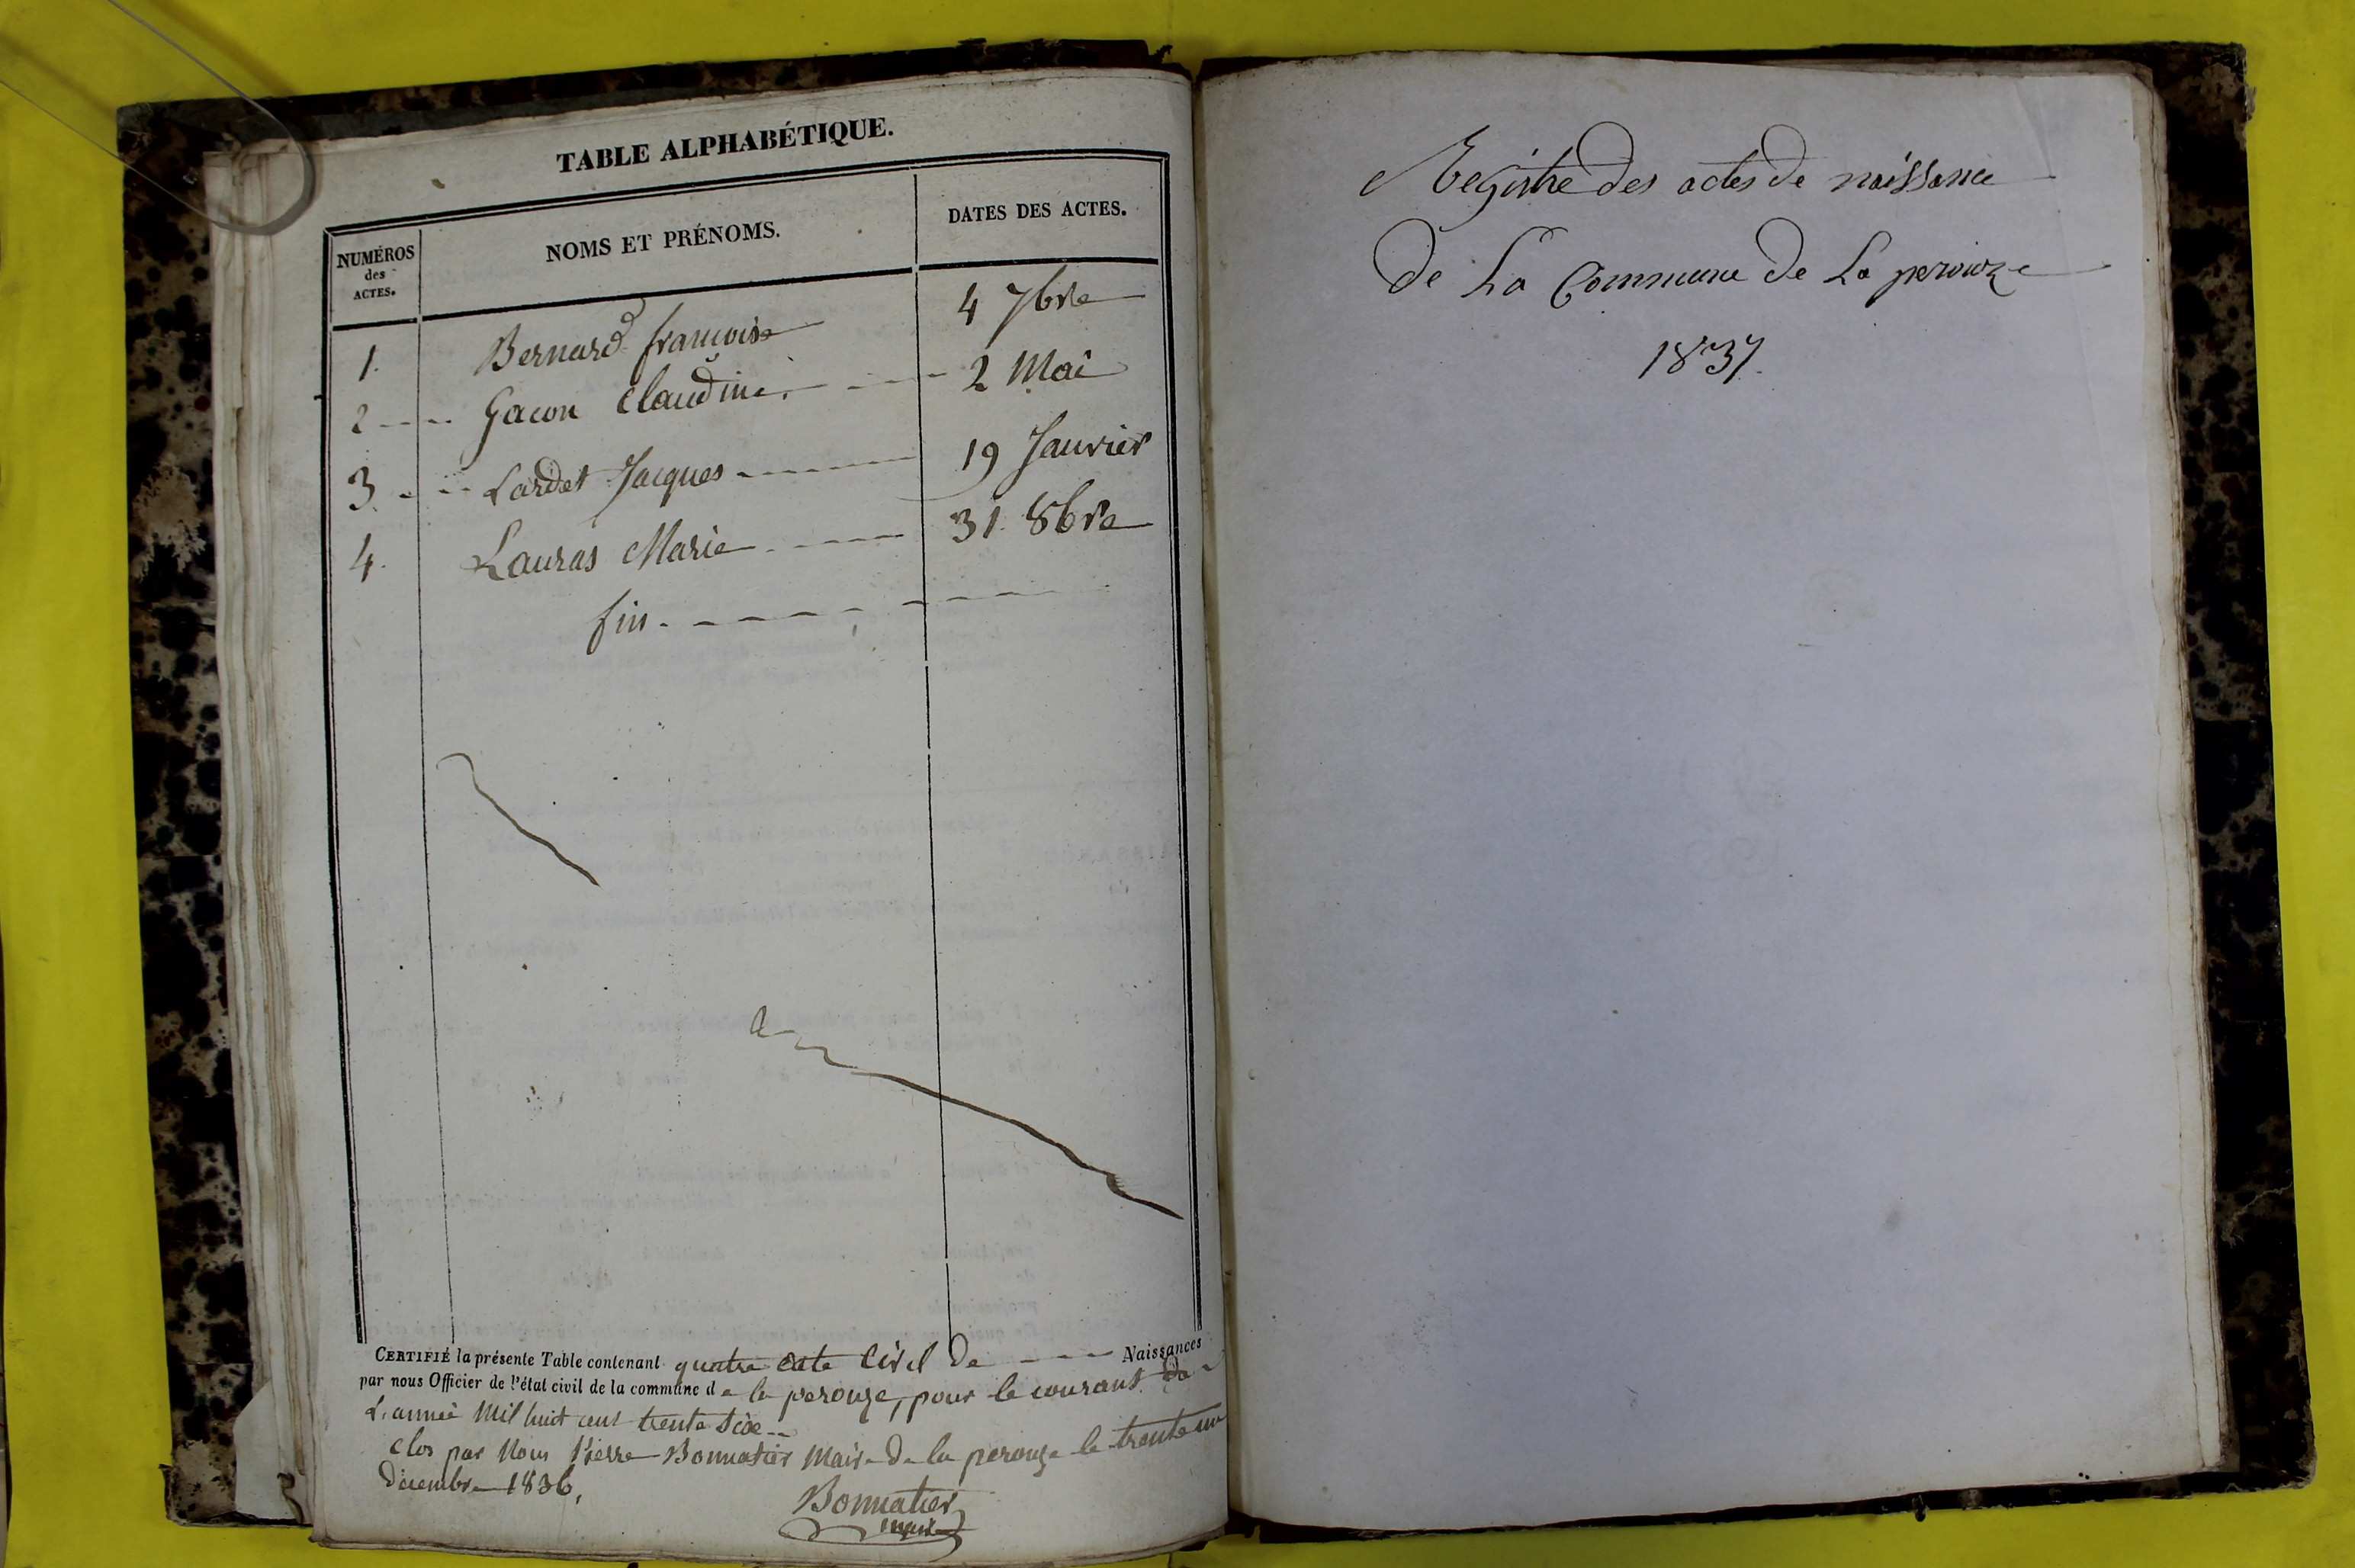 TABLE ALPHABÉTIQUE.
NUMÉROS des ACTES.
NOMS ET PRÉNOMS.
DATES DES ACTES.
1. Bernard francoise 4 7bre
2 Gacon Claudine. 2 Mai
3. Lardet Jacques 19 Janvier
4. Lauras Marie 31. 8bre
fin.
CERTIFIÉ la présente Table contenant quatre acte Civil de Naissances
par nous Officier de l'état civil de la commune de la perouze, pour le courant de
L'année Mil huit cent trente Six
clos par Nous Pierre Bonnatier Maire de la perouze le trente un
décembre 1836,
Bonnatier
maire
Registre des actes de naissance
de La Commune de La perouze
1837.